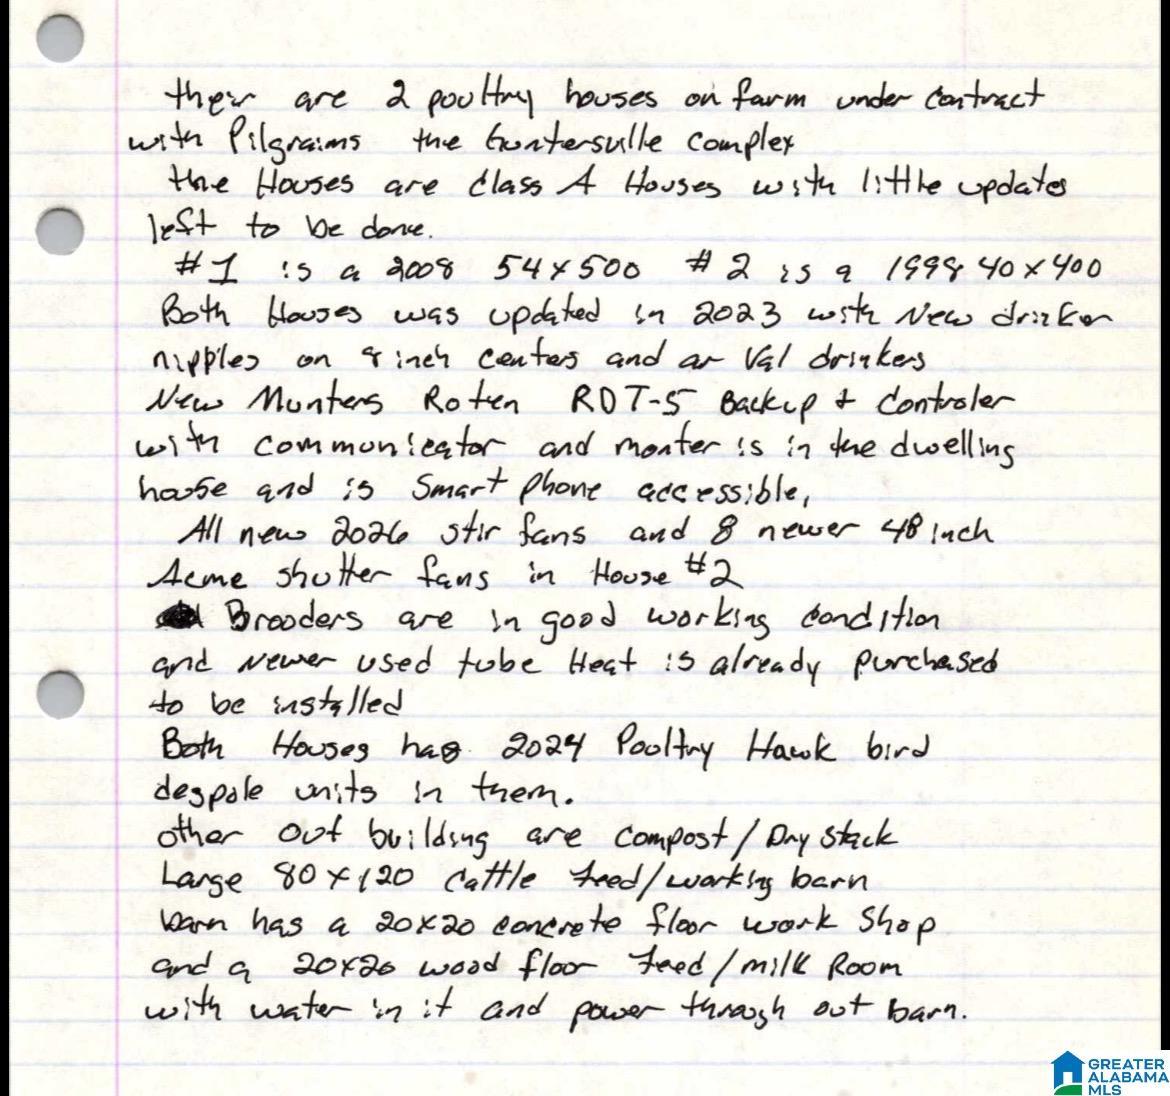 their are 2 poultry houses on farm under contract
with Pilgraims the Guntersville complex
the Houses are Class A Houses with little updates
left to be done.
#1 is a 2008 54x500 #2 is a 1998 40x400
Both Houses was updated in 2023 with New drinker
nipples on 8 inch centers and ar Val drinkers
New Munters Roten RDT-5 Backup & Controler
with communicator and monter is in the dwelling
house and is smart phone accessible,
All new 2026 stir fans and 8 newer 48 inch
Acme shutter fans in House #2
Brooders are in good working condition
and newer used tube Heat is already purchased
to be installed
Both Houses has 2024 Poultry Hawk bird
despole units in them.
other out building are compost/Dry stack
Large 80x120 cattle feed/working barn
barn has a 20x20 concrete floor work shop
and a 20x20 wood floor feed/milk Room
with water in it and power through out barn.
GREATER
ALABAMA
MLS